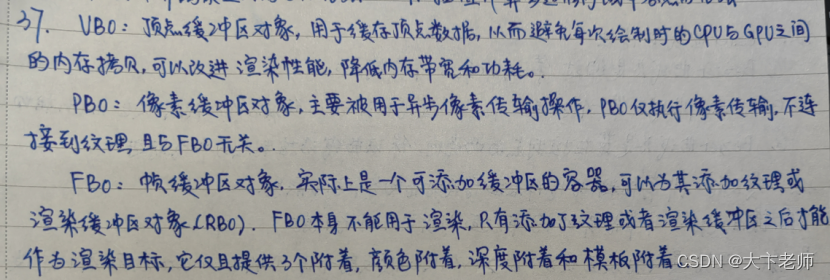 37. VBO：顶点缓冲区对象，用于缓存顶点数据，从而避免每次绘制时的CPU与GPU之间
的内存拷贝，可以改进渲染性能，降低内存带宽和功耗。
PBO：像素缓冲区对象，主要被用于异步像素传输操作，PBO仅执行像素传输，不连
接到纹理，且与FBO无关。
FBO：帧缓冲区对象，实际上是一个可添加缓冲区的容器，可以为其添加纹理或
渲染缓冲区对象(RBO)．FBO本身不能用于渲染，只有添加了纹理或者渲染缓冲区之后才能
作为渲染目标，它仅且提供3个附着，颜色附着，深度附着和模板附着
CSDN @大卞老师